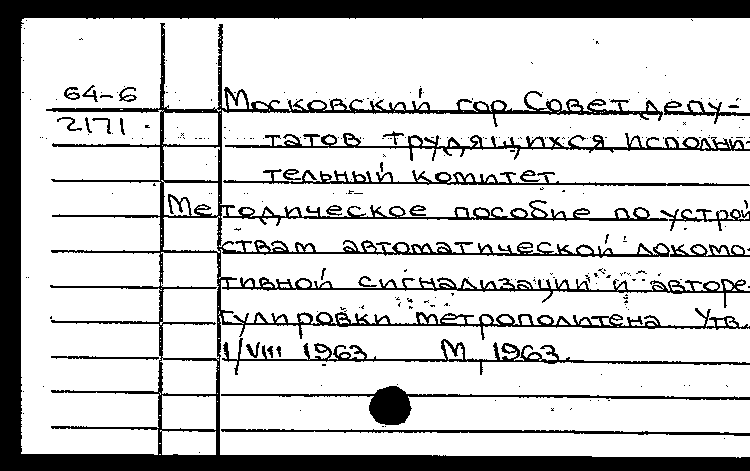 64-6
2171
Московский гор. Совет депу-
татов трудящихся. Исполни-
тельный комитет.
Методическое пособие по устрой
ствам автоматической локомо-
тивной сигнализации и авторе-
гулировки метрополитена. Утв.
1/VIII 1963. М., 1963.